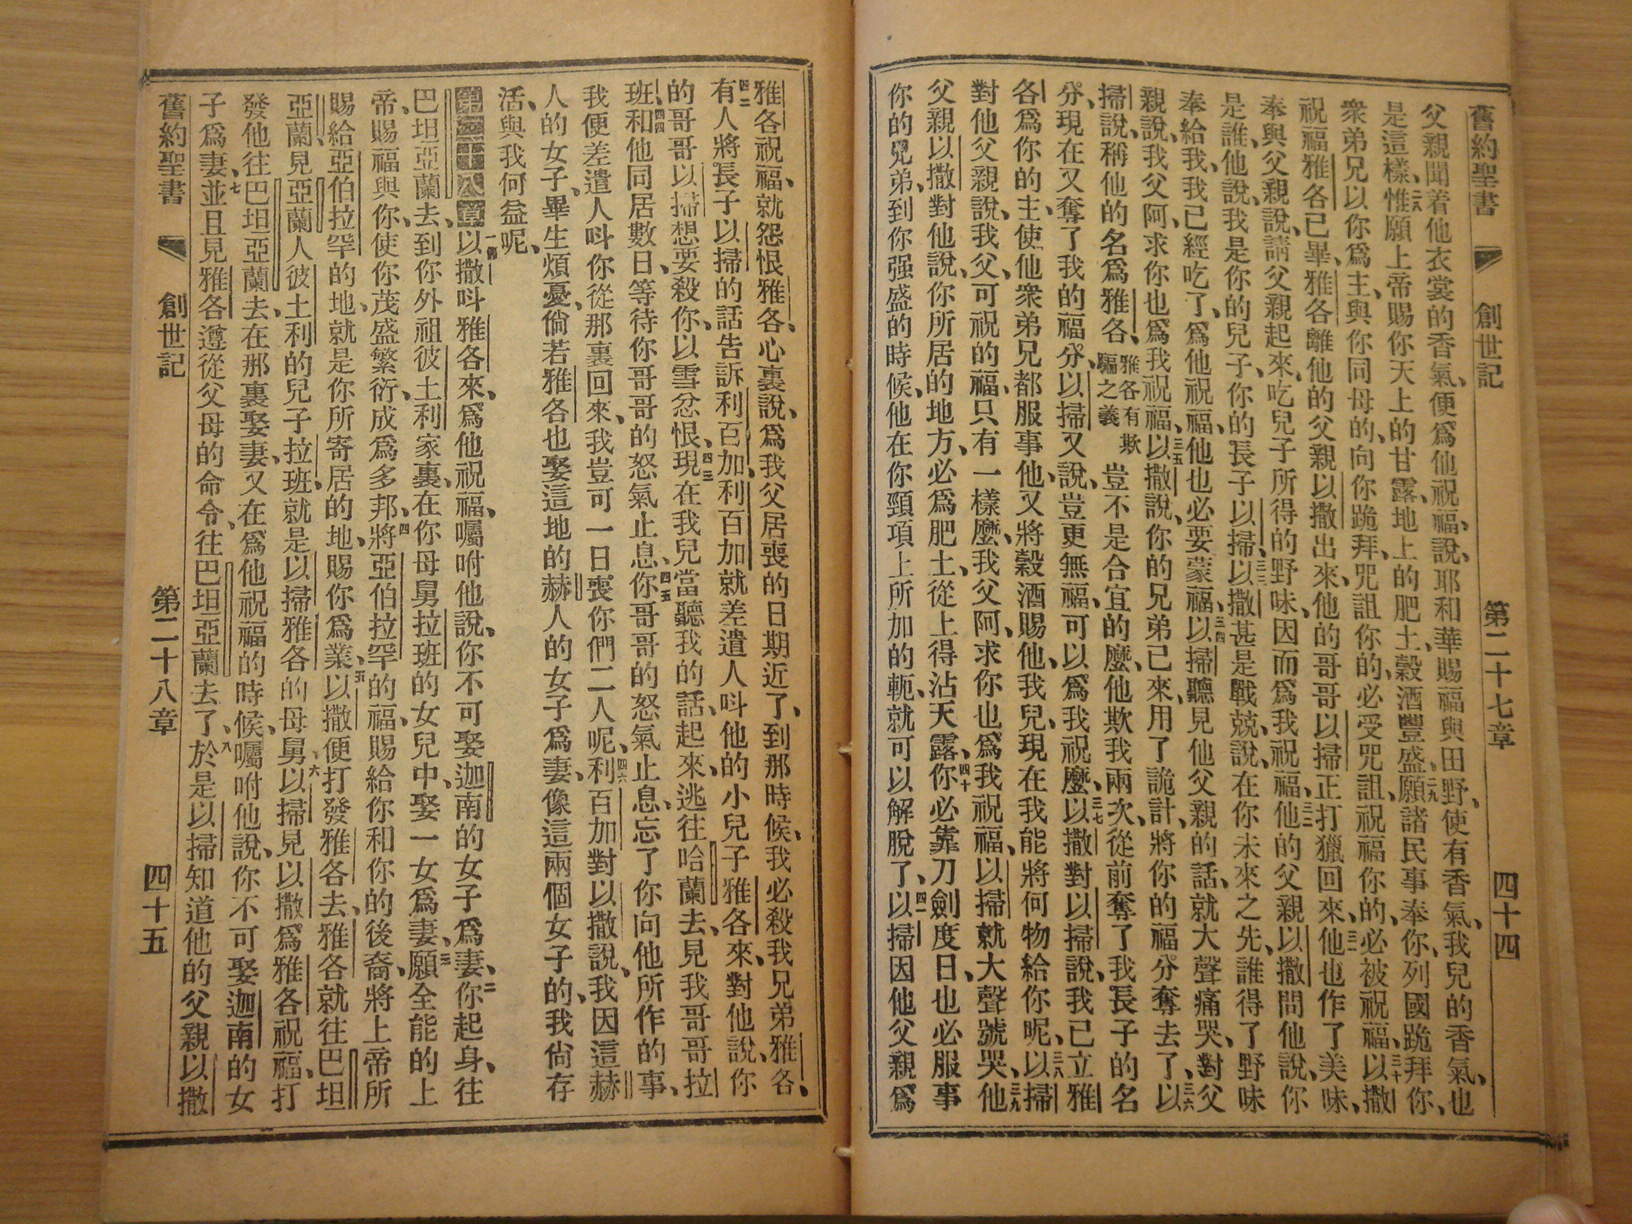 舊約聖書 創世記 第二十七章 四十四
父親聞着他衣裳的香氣、便爲他祝福、說、耶和華賜福與田野、使有香氣、我兒的香氣、也
是這樣、二八惟願上帝賜你天上的甘露、地上的肥土、穀酒豐盛、二九願諸民事奉你、列國跪拜你、
衆弟兄以你爲主、與你同母的、向你跪拜、咒詛你的、必受咒詛、祝福你的、必被祝福、三十以撒
祝福雅各已畢、雅各離他的父親以撒出來、他的哥哥以掃正打獵回來、三一他也作了美味、
奉與父親、說、請父親起來、吃兒子所得的野味、因而爲我祝福、三二他的父親以撒問他說、你
是誰、他說、我是你的兒子、你的長子以掃、三三以撒甚是戰兢、說、在你未來之先、誰得了野味
奉給我、我已經吃了、爲他祝福、他也必要蒙福、三四以掃聽見他父親的話、就大聲痛哭、對父
親說、我父阿、求你也爲我祝福、三五以撒說、你的兄弟已來、用了詭計、將你的福分奪去了、三六以
掃說、稱他的名爲雅各、雅各有欺騙之義豈不是合宜的麼、他欺我兩次、從前奪了我長子的名
分、現在又奪了我的福分、以掃又說、豈更無福、可以爲我祝麼、三七以撒對以掃說、我已立雅
各爲你的主、使他衆弟兄都服事他、又將穀酒賜他、我兒、現在我能將何物給你呢、三八以掃
對他父親說、我父、可祝的福、只有一樣麼、我父阿、求你也爲我祝福、以掃就大聲號哭、三九他
父親以撒對他說、你所居的地方、必爲肥土、從上得沾天露、四十你必靠刀劍度日、也必服事
你的兄弟、到你强盛的時候、他在你頸項上所加的軛、就可以解脫了、四一以掃因他父親爲
雅各祝福、就怨恨雅各、心裏說、爲我父居喪的日期近了、到那時候、我必殺我兄弟雅各、
四二有人將長子以掃的話告訴利百加、利百加就差遣人呌他的小兒子雅各來、對他說、你
的哥哥以掃想要殺你、以雪忿恨、四三現在我兒當聽我的話、起來、逃往哈蘭去、見我哥哥拉
班、四四和他同居數日、等待你哥哥的怒氣止息、四五你哥哥的怒氣止息、忘了你向他所作的事、
我便差遣人呌你從那裏回來、我豈可一日喪你們二人呢、四六利百加對以撒說、我因這赫
人的女子、畢生煩憂、倘若雅各也娶這地的赫人的女子爲妻、像這兩個女子的、我尙存
活、與我何益呢、
第二十八章一節以撒呌雅各來、爲他祝福、囑咐他說、你不可娶迦南的女子爲妻、二你起身、往
巴坦亞蘭去、到你外祖彼土利家裏、在你母舅拉班的女兒中、娶一女爲妻、三願全能的上
帝、賜福與你、使你茂盛繁衍、成爲多邦、四將亞伯拉罕的福、賜給你和你的後裔、將上帝所
賜給亞伯拉罕的地、就是你所寄居的地、賜你爲業、五以撒便打發雅各去、雅各就往巴坦
亞蘭、見亞蘭人彼土利的兒子拉班、就是以掃雅各的母舅、六以掃見以撒爲雅各祝福、打
發他往巴坦亞蘭去、在那裏娶妻、又在爲他祝福的時候、囑咐他說、你不可娶迦南的女
子爲妻、七並且見雅各遵從父母的命令、往巴坦亞蘭去了、八於是以掃知道他的父親以撒
舊約聖書 創世記 第二十八章 四十五